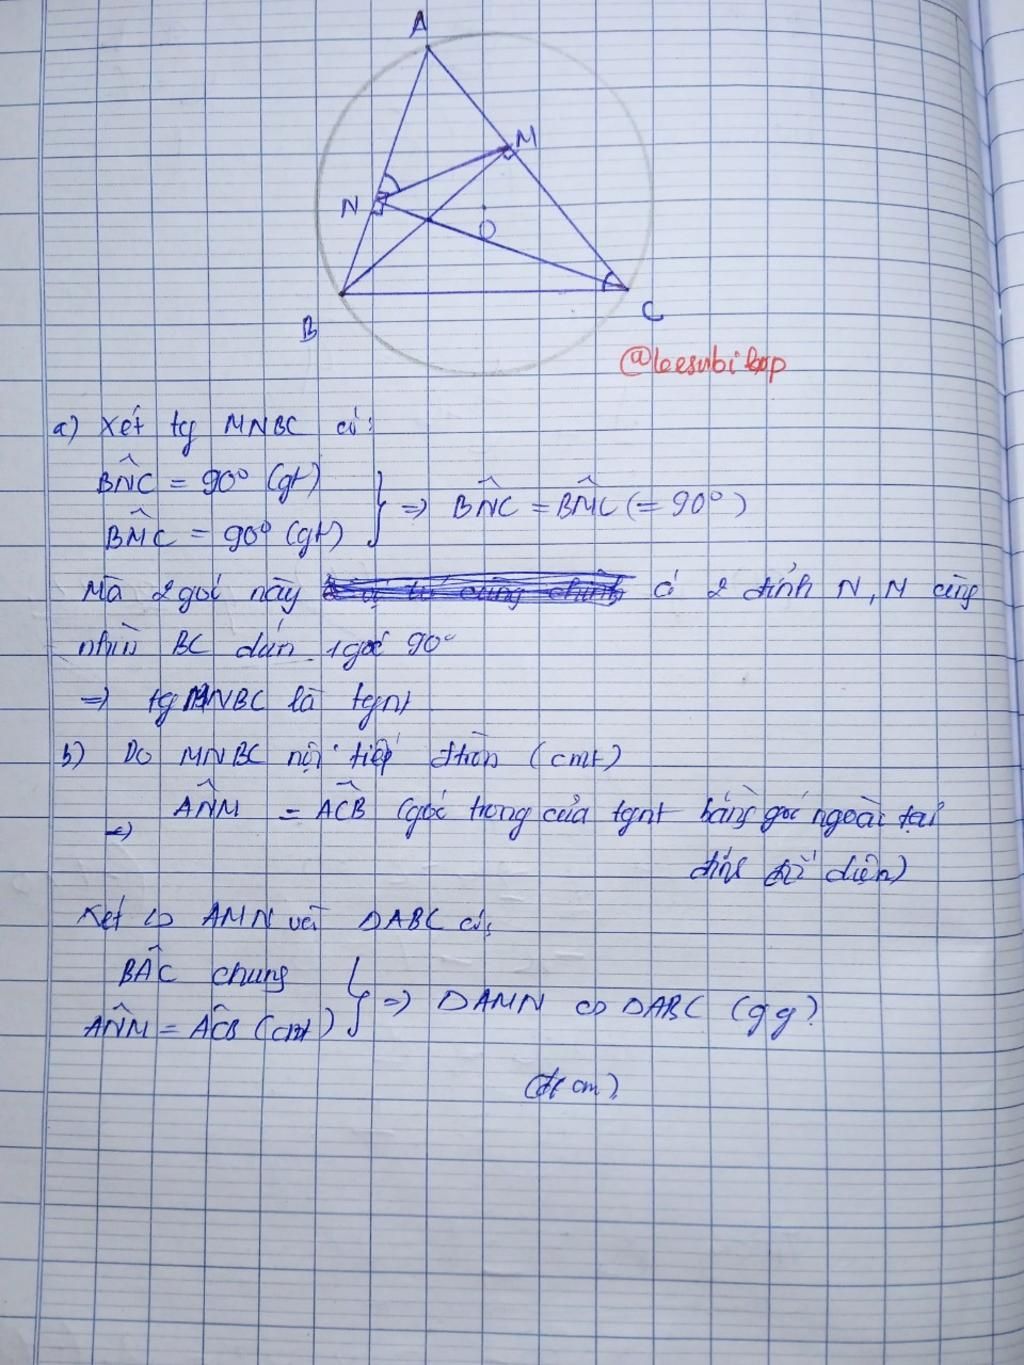 A
M
N
O
B
C
@leesubikop
a) Xét tg MNBC có:
BN̂C = 90° (gt)
BM̂C = 90° (gt)
=> BN̂C = BM̂C (= 90°)
Mà 2 góc này có 2 đỉnh N, M cùng
nhìn BC dưới 1 góc 90°
=> tg MNBC là tgnt
b) Do MNBC nội tiếp đtròn (cmt)
=> AN̂M = AĈB (góc trong của tgnt bằng góc ngoài tại
đỉnh đối diện)
Xét △ AMN và △ABC có:
BÂC chung
AN̂M = AĈB (cmt)
=> △AMN ∽ △ABC (gg)
(đpcm)